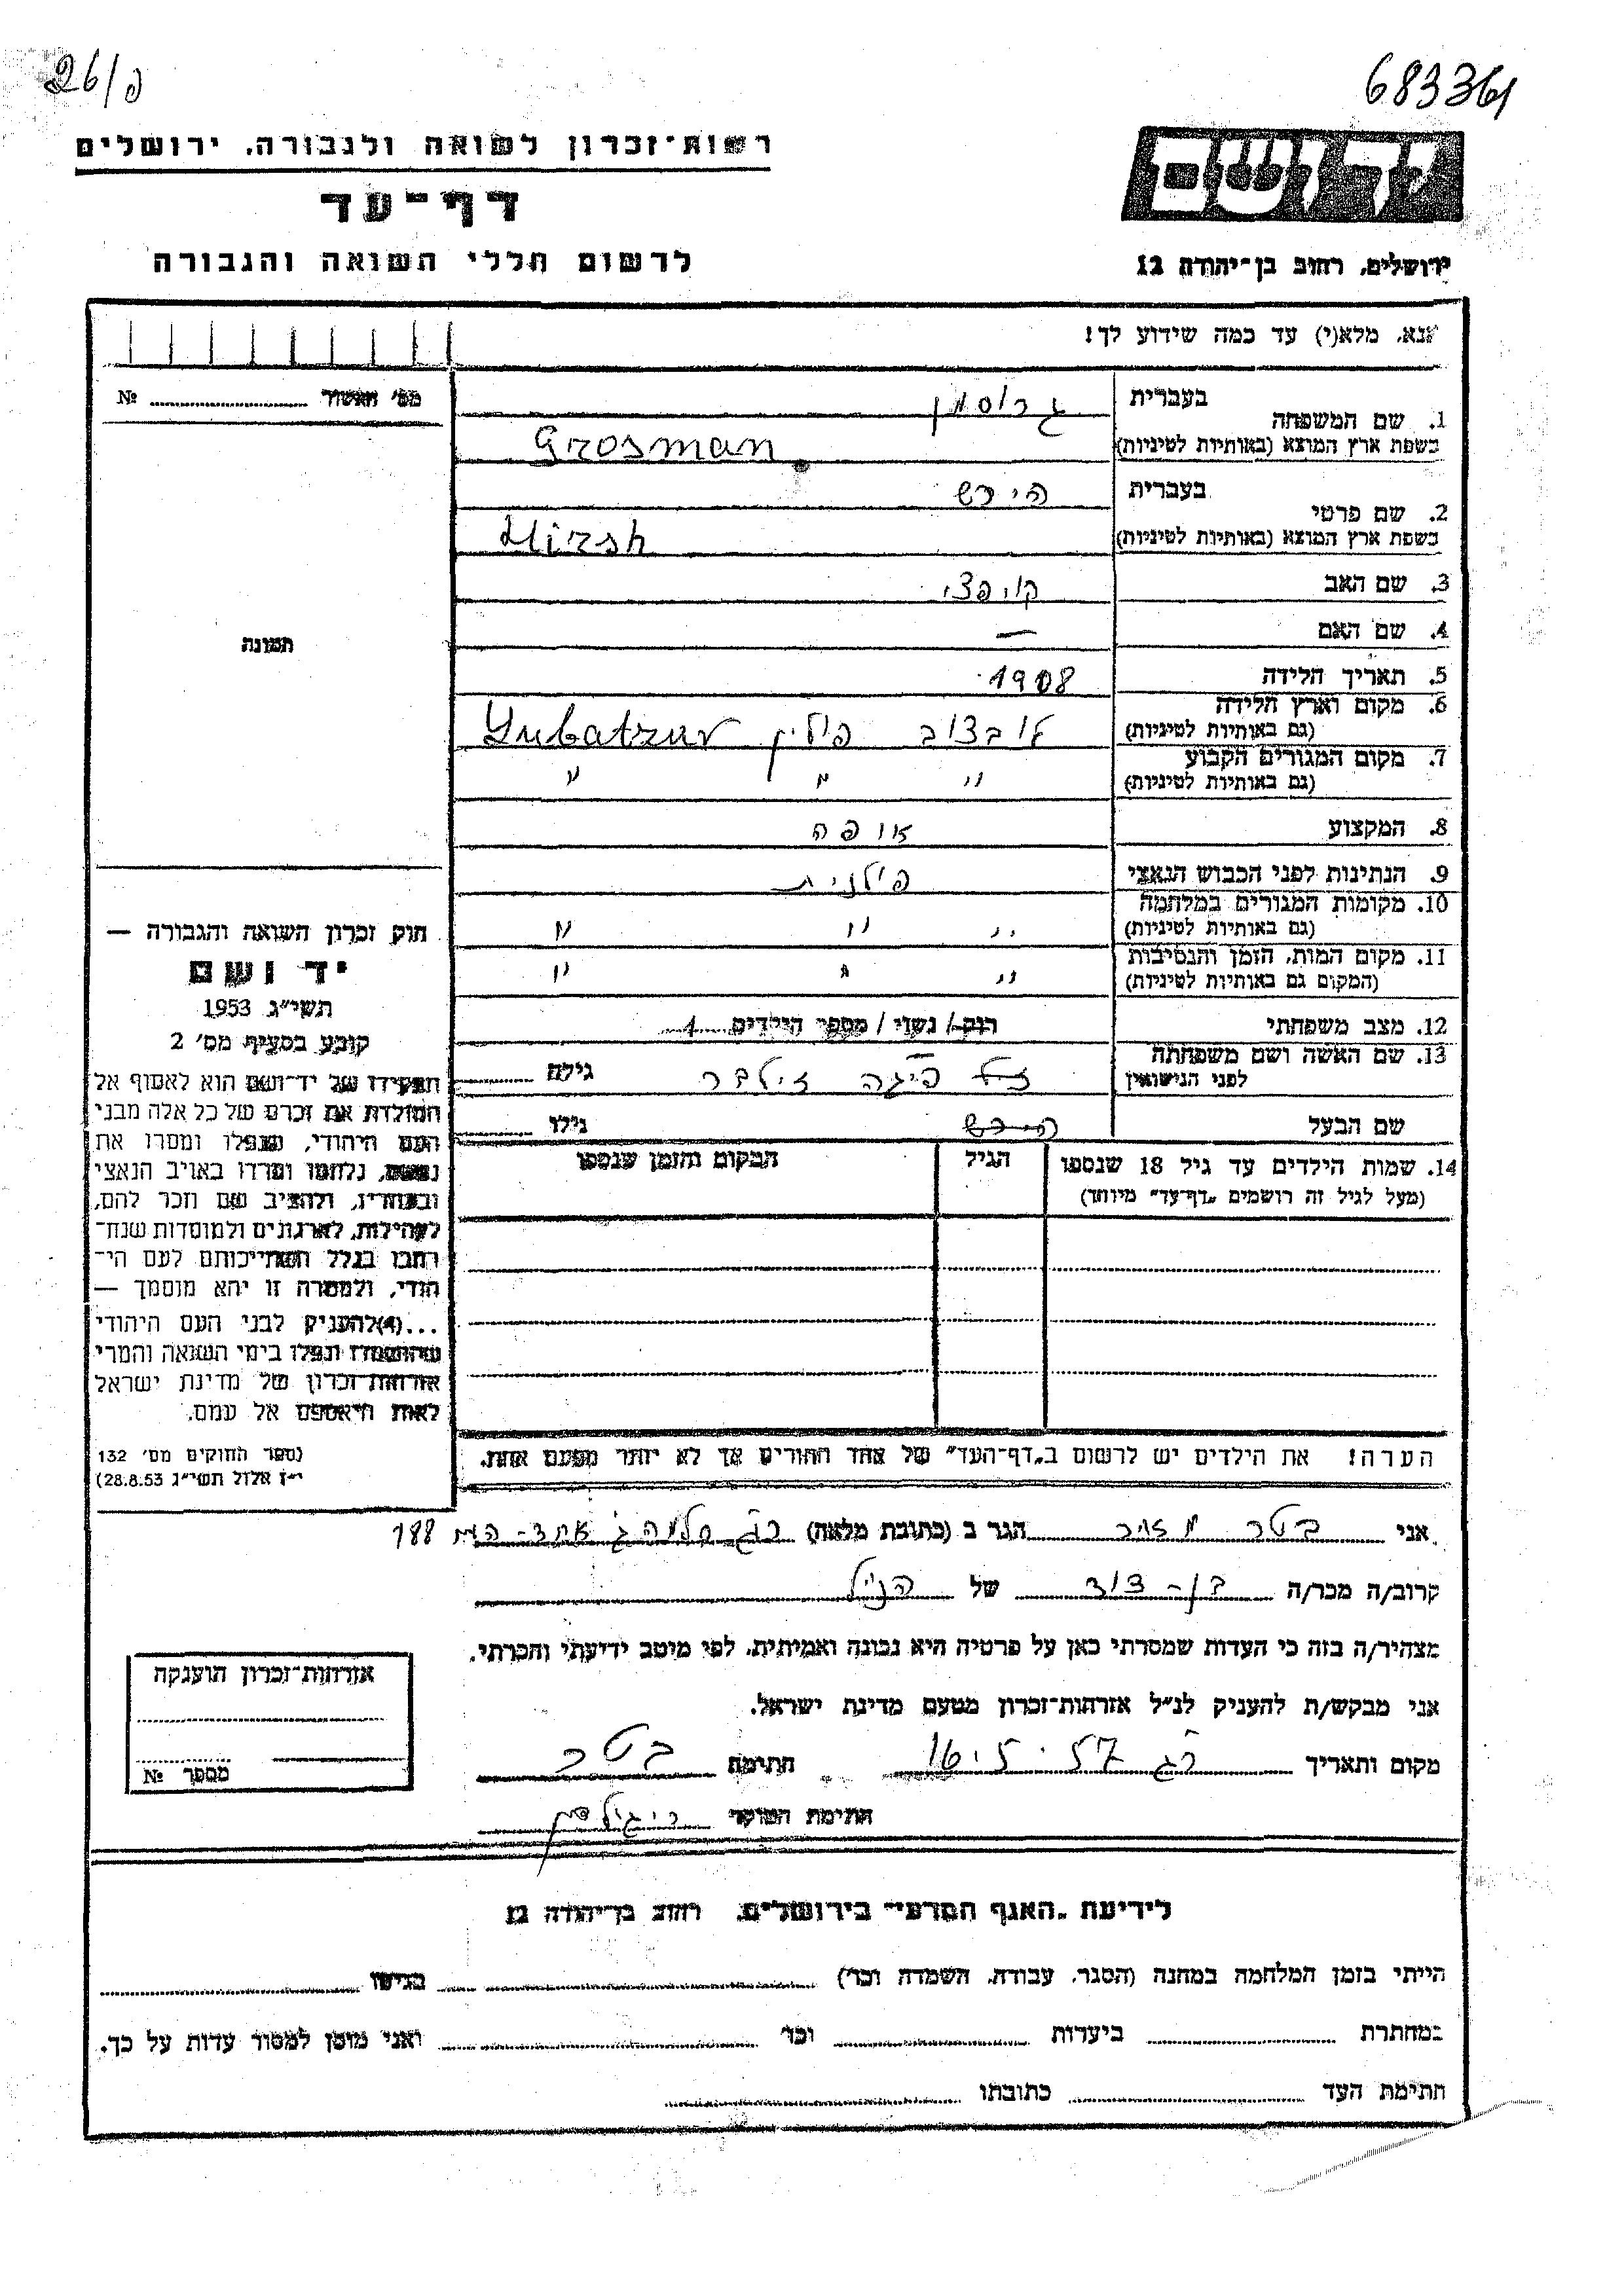 26/פ
683361
רשות־זכרון לשואה ולגבורה, ירושלים
דף־עד
לרשום חללי השואה והגבורה
יד ושם
ירושלים, רחוב בן־יהודה 12
נא, מלא(י) עד כמה שידוע לך!
מס' האשור № 
1. שם המשפחה
בעברית גרוסמן
בשפת ארץ המוצא (באותיות לטיניות) Grosman
2. שם פרטי
בעברית הירש
בשפת ארץ המוצא (באותיות לטיניות) Hirsh
3. שם האב קופצי
4. שם האם —
5. תאריך הלידה 1908
6. מקום וארץ הלידה
(גם באותיות לטיניות) לובצוב פולין Lubatzuv
7. מקום המגורים הקבוע
(גם באותיות לטיניות) " " "
8. המקצוע אופה
9. הנתינות לפני הכבוש הנאצי פולנית
10. מקומות המגורים במלחמה
(גם באותיות לטיניות) " " "
11. מקום המות, הזמן והנסיבות
(המקום גם באותיות לטיניות) " " "
12. מצב משפחתי רוק / נשוי / מספר הילדים 1
13. שם האשה ושם משפחתה
לפני הנישואין פיגה זילבר גילה
שם הבעל הירש גילו
14. שמות הילדים עד גיל 18 שנספו
(מעל לגיל זה רושמים "דף־עד" מיוחד)
הגיל
המקום והזמן שנספו
תמונה
חוק זכרון השואה והגבורה —
יד ושם
תשי"ג 1953
קובע בסעיף מס' 2
תפקידו של יד־ושם הוא לאסוף אל
המולדת את זכרם של כל אלה מבני
העם היהודי, שנפלו ומסרו את
נפשם, נלחמו ומרדו באויב הנאצי
ובעוזריו, ולהציב שם וזכר להם,
לקהילות, לארגונים ולמוסדות שנח־
רבו בגלל השתייכותם לעם הי־
הודי, ולמטרה זו יהא מוסמך —
...(4) להעניק לבני העם היהודי
שהושמדו ונפלו בימי השואה והמרי
אזרחות־זכרון של מדינת ישראל
לאות היאספם אל עמם.
(ספר החוקים מס' 132
י"ז אלול תשי"ג 28.8.53)
הערה! את הילדים יש לרשום ב"דף־העד" של אחד ההורים אך לא יותר מפעם אחת.
אני בטר מאיר הגר ב (כתובת מלאה) רג שלמה אחד־העם 188
קרוב/ה מכר/ה בן־דוד של הנ"ל
מצהיר/ה בזה כי העדות שמסרתי כאן על פרטיה היא נכונה ואמיתית, לפי מיטב ידיעתי והכרתי.
אני מבקש/ת להעניק לנ"ל אזרחות־זכרון מטעם מדינת ישראל.
מקום ותאריך רג 16.5.57 חתימה בטר
חתימת הפוקד
אזרחות־זכרון הוענקה
מספר №
לידיעת "האגף המדעי" בירושלים, רחוב בן־יהודה 12
הייתי בזמן המלחמה במחנה (הסגר, עבודה, השמדה וכו') בגיטו
במחתרת ביערות וכו' ואני מוכן למסור עדות על כך.
חתימת העד כתובתו